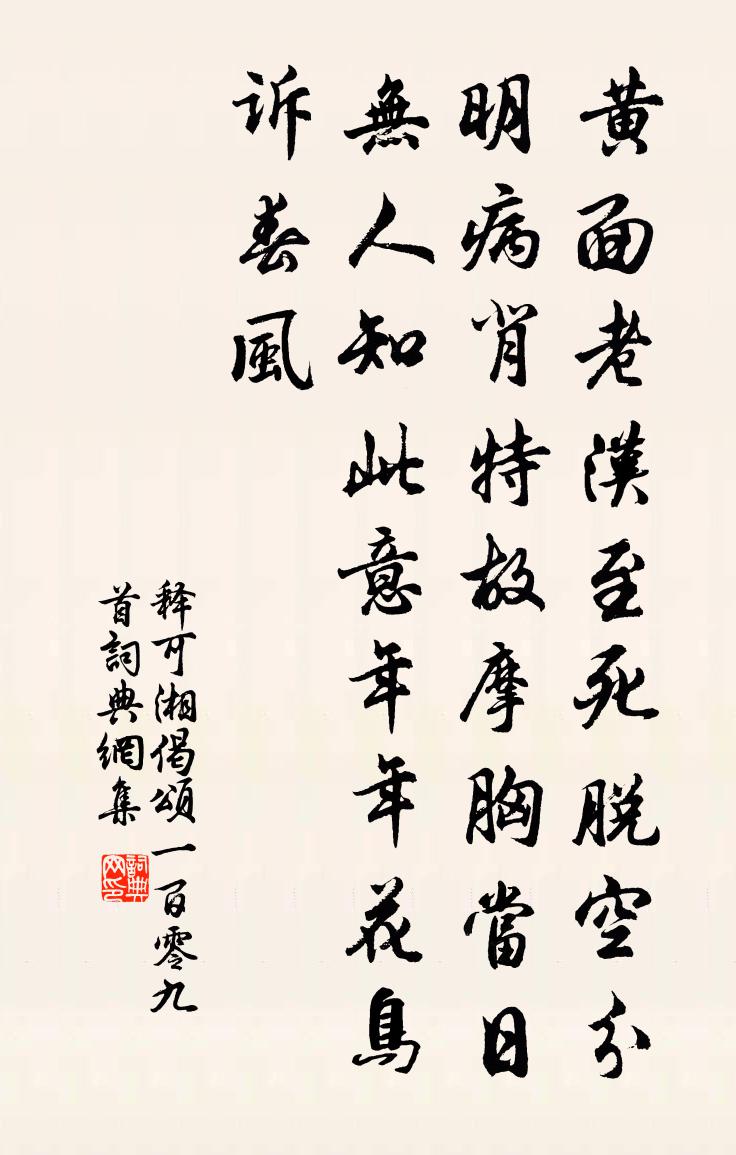 黄面老漢至死脱空分
明病背特故摩胸當日
無人知此意年年花鳥
訴春風
释可湘偈頌一百零九
首詞典網集
詞典网印